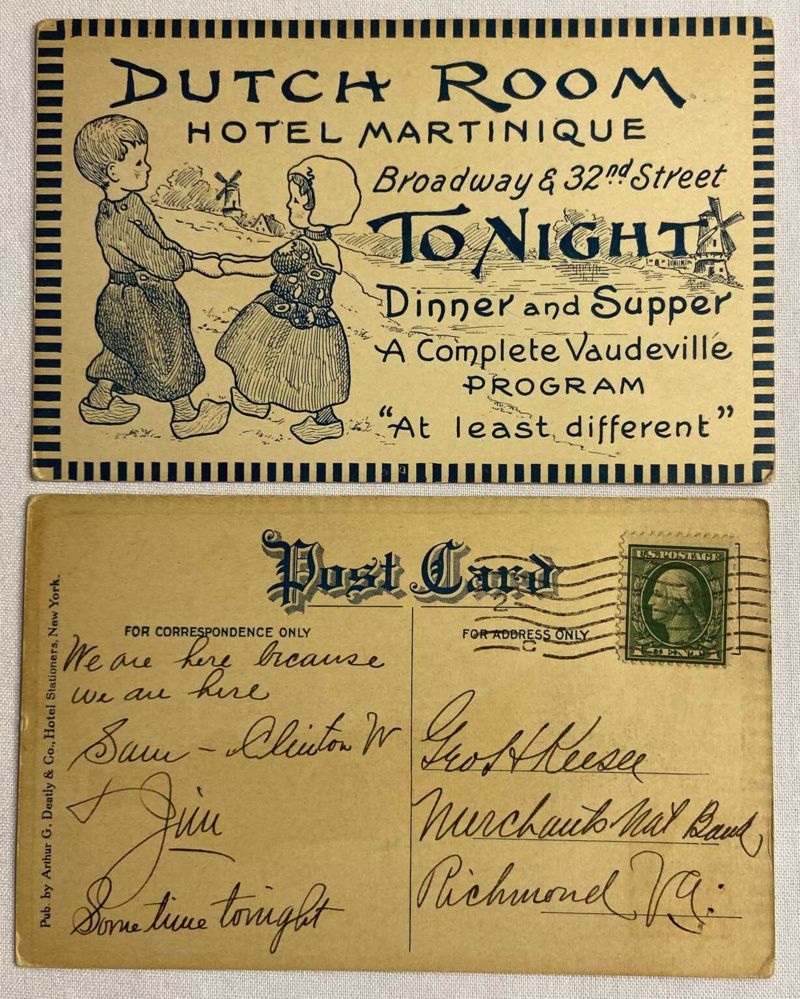 DUTCH ROOM
HOTEL MARTINIQUE
Broadway & 32nd Street
TO NIGHT
Dinner and Supper
A Complete Vaudeville
PROGRAM
"At least different"
Post Card
U.S. POSTAGE
CENT
FOR CORRESPONDENCE ONLY
FOR ADDRESS ONLY
Pub. by Arthur G. Deatly & Co., Hotel Stationers, New York.
We are here because
we are here
Sam - Clinton W
+ Jim
Some time tonight
Geo H Keesee
Merchants Nat Bank,
Richmond Va: